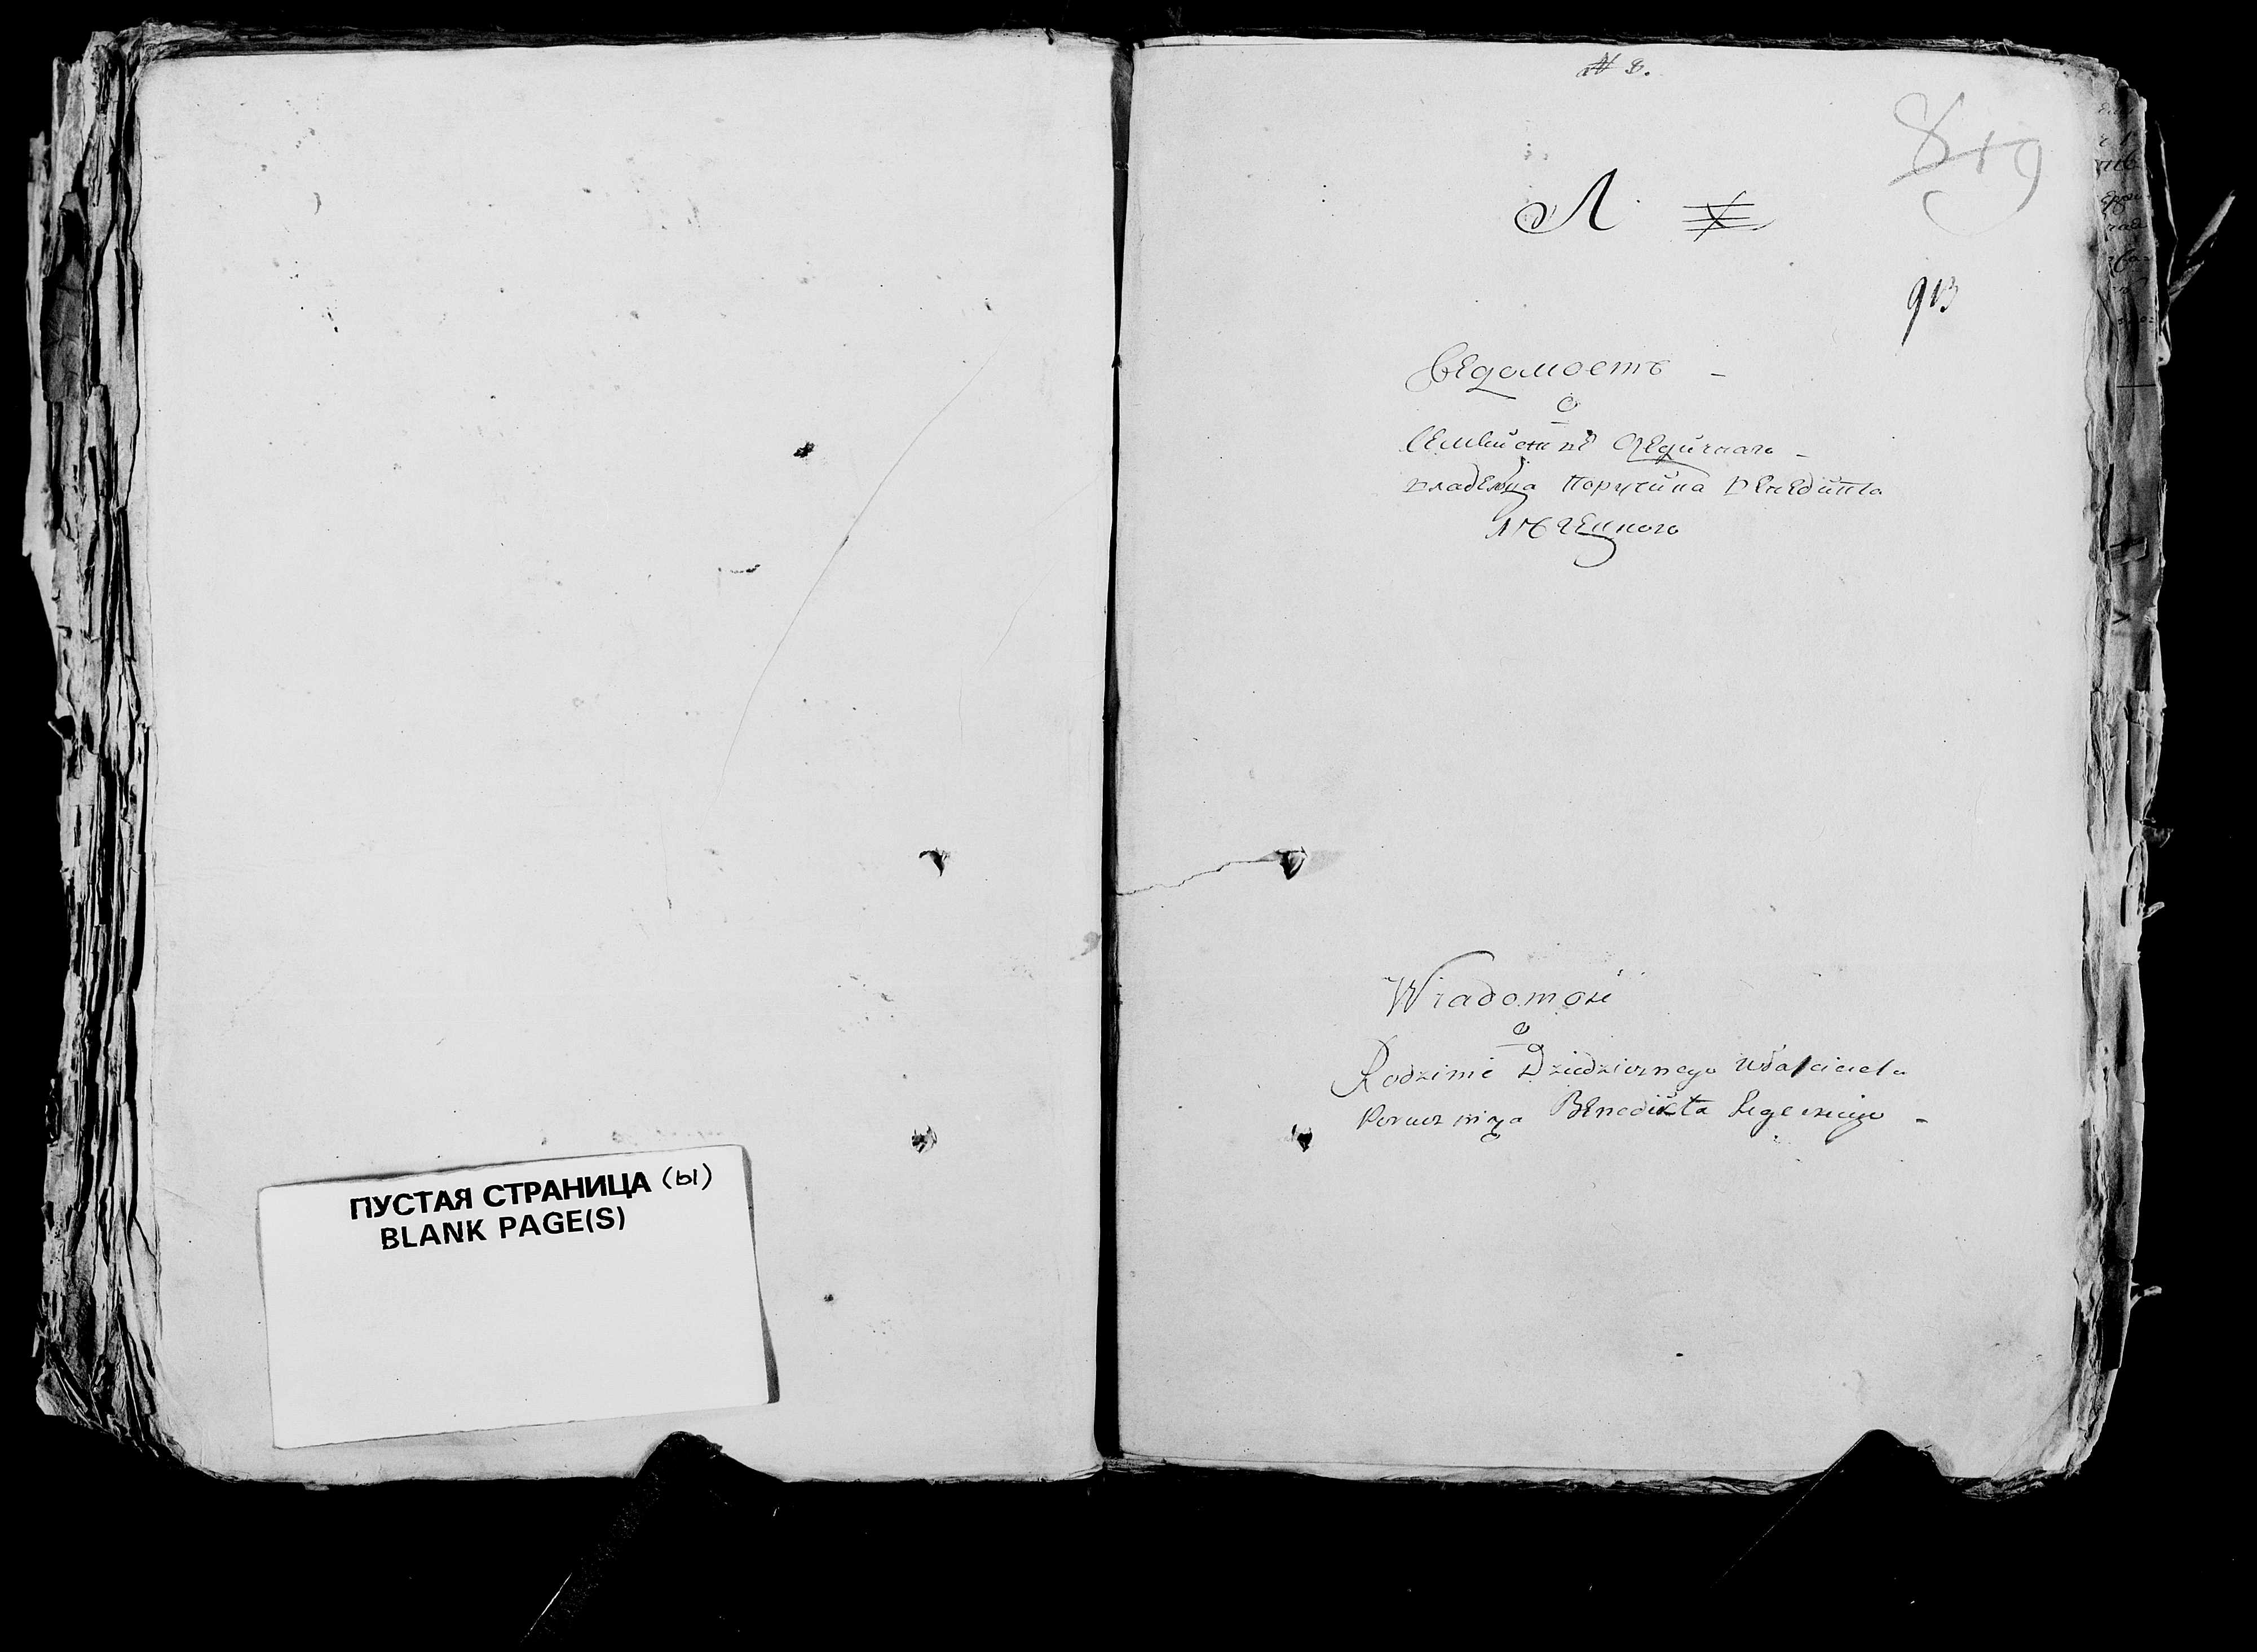 ПУСТАЯ СТРАНИЦА (ы)
BLANK PAGE(S)
№ 8.
Л.
819
913
Ведомость
о
Семействе
владельца Поручика Бенедикта
Wiadomość
o
Rodzinie Dziedzicznego Właściciela
Porucznika Benedikta